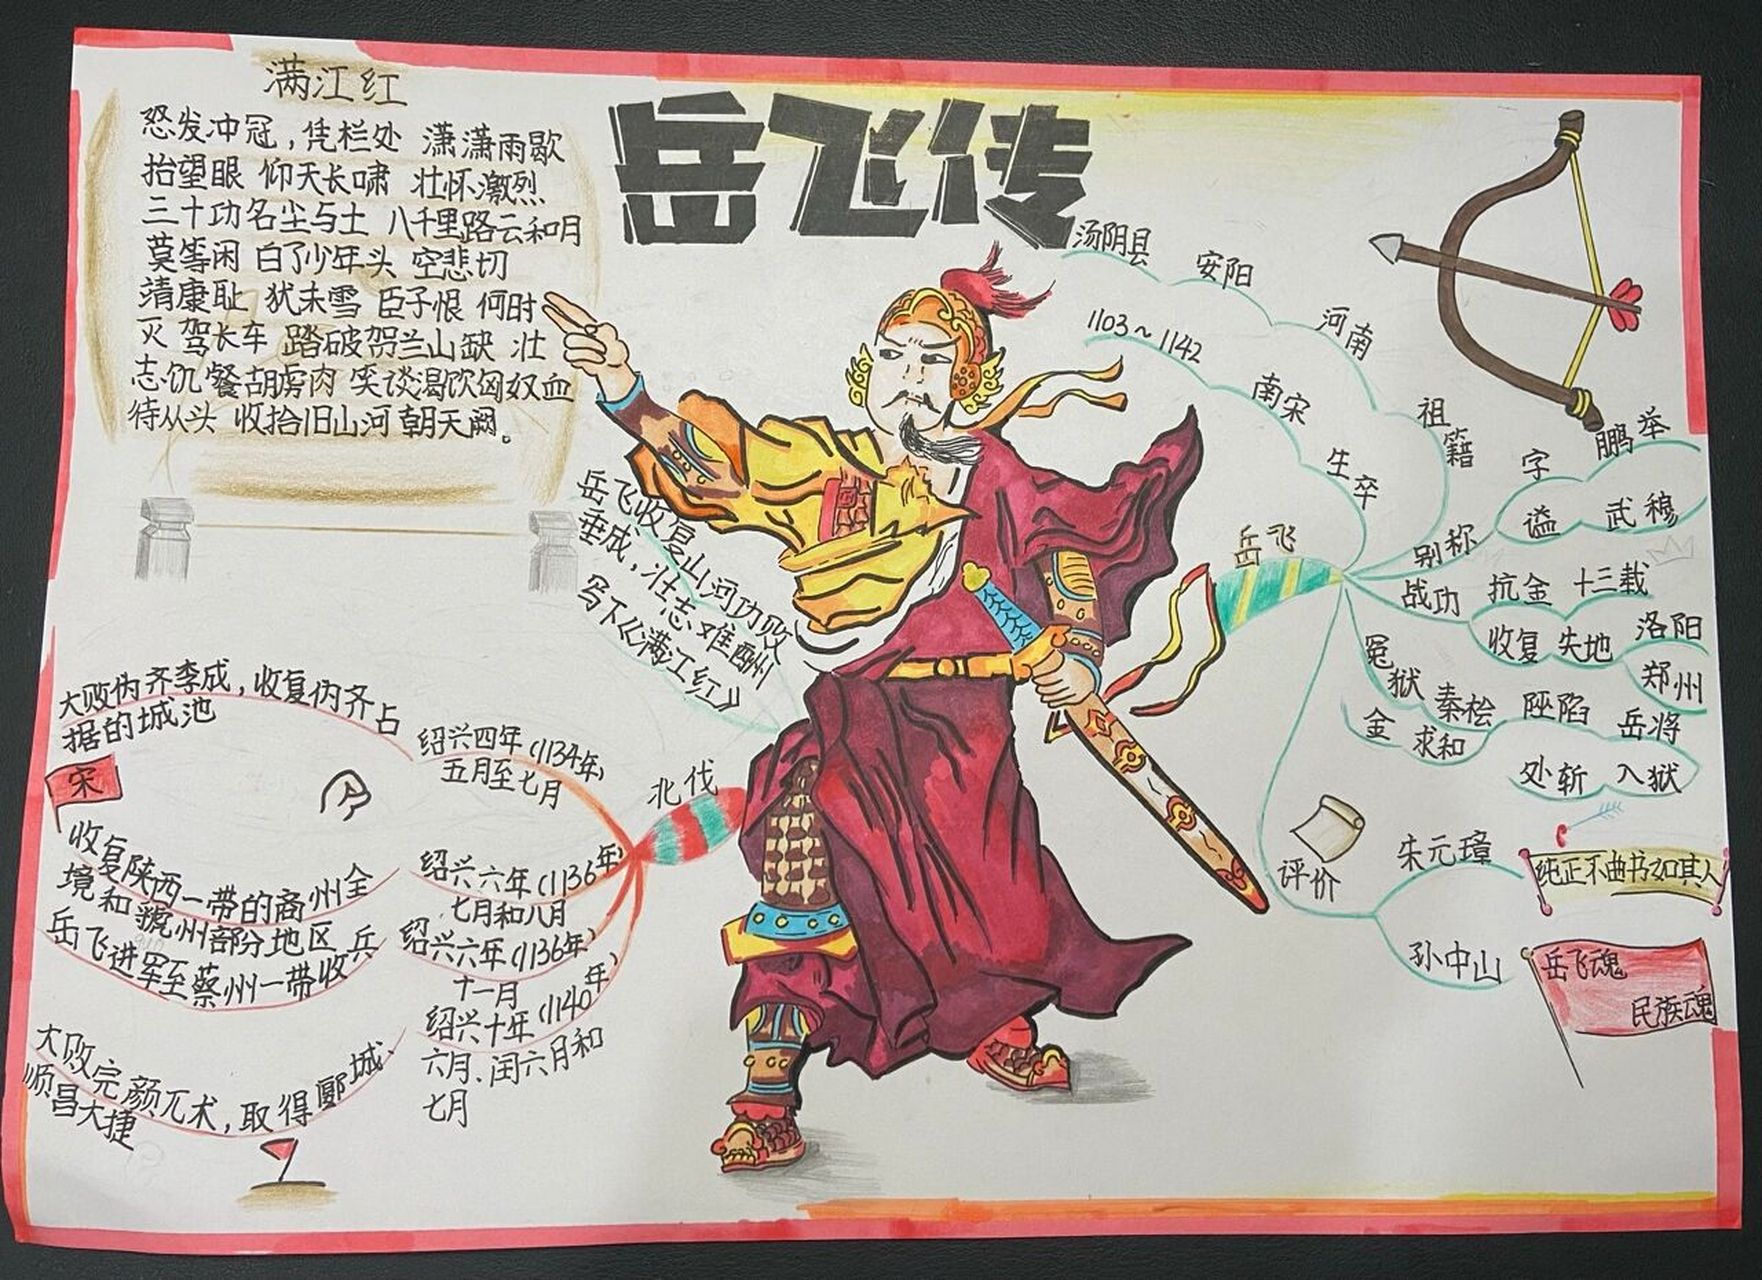 满江红
怒发冲冠，凭栏处 潇潇雨歇
抬望眼 仰天长啸 壮怀激烈
三十功名尘与土 八千里路云和月
莫等闲 白了少年头 空悲切
靖康耻 犹未雪 臣子恨 何时
灭 驾长车 踏破贺兰山缺 壮
志饥餐胡虏肉 笑谈渴饮匈奴血
待从头 收拾旧山河 朝天阙。
岳飞传
岳飞收复山河功败
垂成，壮志难酬
写下《满江红》
汤阴县 安阳 河南 祖籍
1103～1142 南宋 生卒
岳飞
别称
字 鹏举
谥 武穆
战功 抗金 十三载
收复失地 洛阳
郑州
冤狱 秦桧 陷 岳将
金 求和
处斩 入狱
评价
朱元璋
纯正不曲书如其人
孙中山
岳飞魂
民族魂
北伐
绍兴四年（1134年）
五月至七月
大败伪齐李成，收复伪齐占
据的城池
宋
绍兴六年（1136年）
七月和八月
收复陕西一带的商州全
境和虢州部分地区
绍兴六年（1136年）
十一月
岳飞进军至蔡州一带收兵
绍兴十年（1140年）
六月、闰六月和
七月
大败完颜兀术，取得郾城、
顺昌大捷